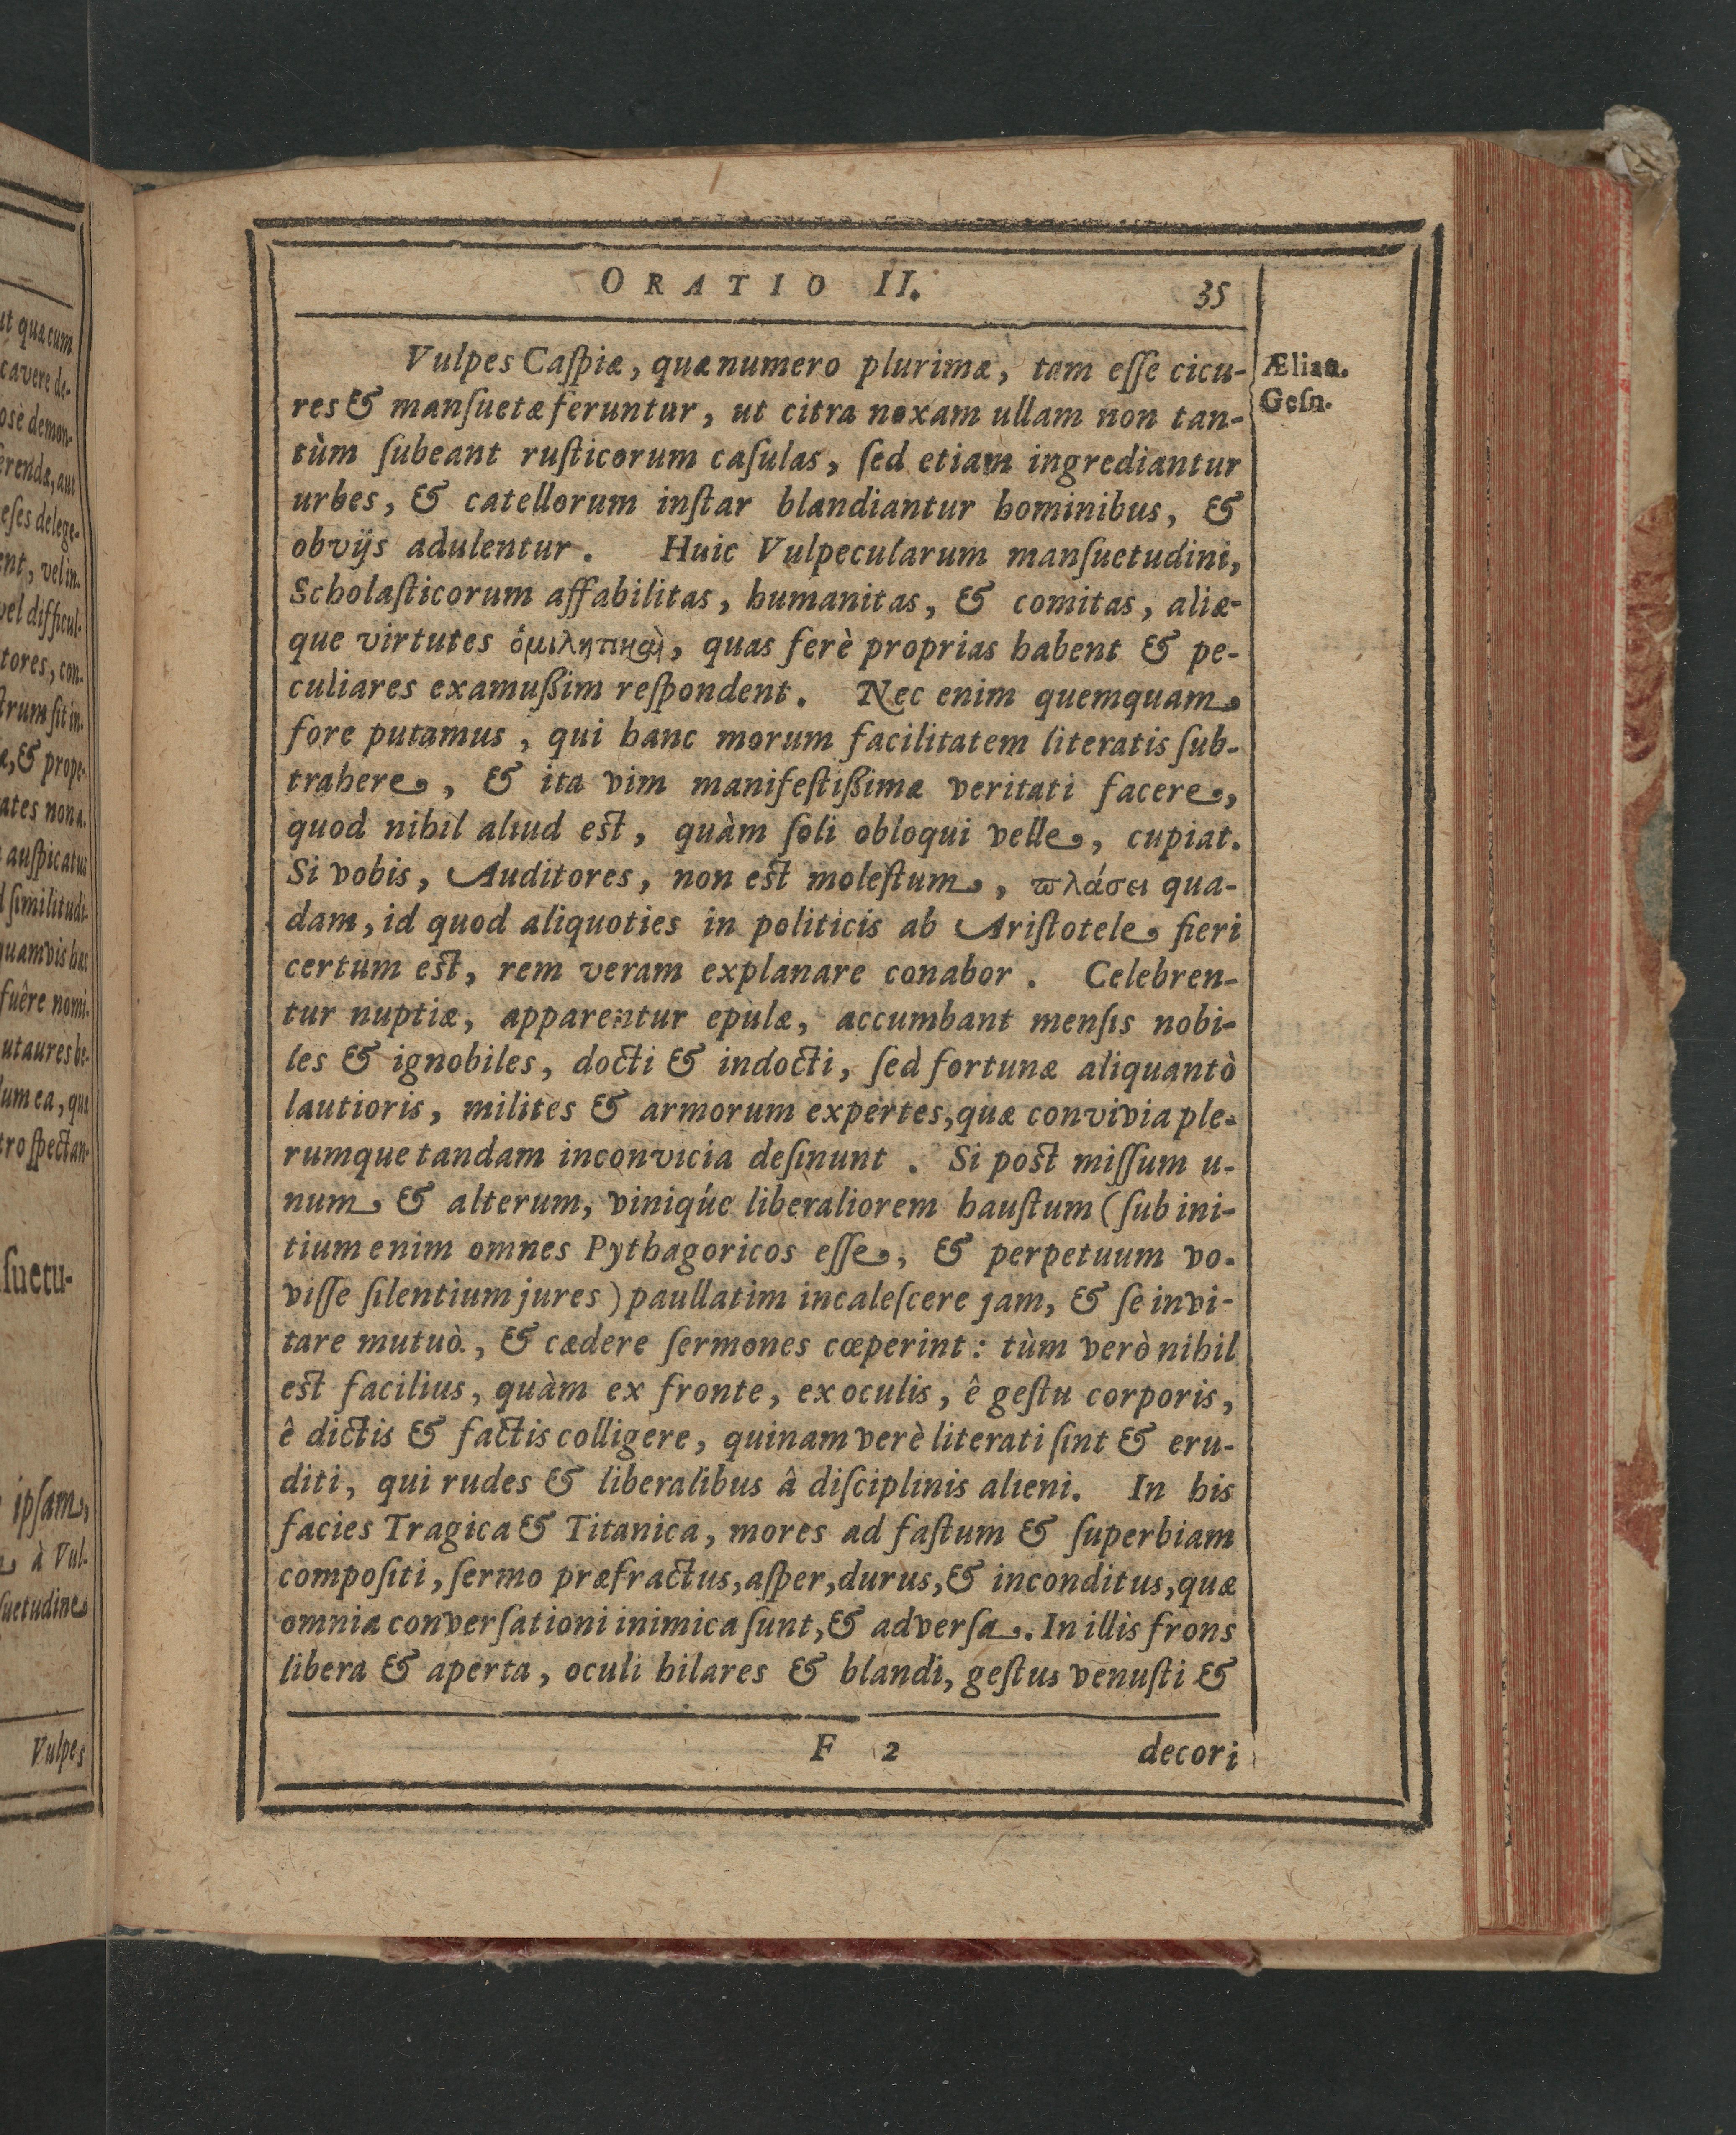 ut quacum
cavere de-
osè demon-
erenda, aut
eſes delege-
ent, vel in-
vel difficul-
tores, con-
ſtrum ſit in-
æ, & prope-
ates non a-
auſpicatus
ſimilitudi-
quamvis hac
fuêre nomi-
ut aures be-
lum ea, qua
tro ſpectan-
ſuetu-
ipſam,
à Vul-
ſuetudine
Vulpes
ORATIO II. 35
Vulpes Caſpiæ, quæ numero plurimæ, tam eſſe cicu-
res & manſuetæ feruntur, ut citra noxam ullam non tan-
tùm ſubeant ruſticorum caſulas, ſed etiam ingrediantur
urbes, & catellorum inſtar blandiantur hominibus, &
obvijs adulentur. Huic Vulpecularum manſuetudini,
Scholaſticorum affabilitas, humanitas, & comitas, aliæ-
que virtutes ὁμιλητικαὶ, quas ferè proprias habent & pe-
culiares examuſſim reſpondent. Nec enim quemquam
fore putamus, qui hanc morum facilitatem literatis ſub-
trahere, & ita vim manifeſtiſſimæ veritati facere,
quod nihil aliud eſt, quàm ſoli obloqui velle, cupiat.
Si vobis, Auditores, non eſt moleſtum, πλάσει qua-
dam, id quod aliquoties in politicis ab Ariſtotele fieri
certum eſt, rem veram explanare conabor. Celebren-
tur nuptiæ, apparentur epulæ, accumbant menſis nobi-
les & ignobiles, docti & indocti, ſed fortunæ aliquantò
lautioris, milites & armorum expertes, quæ convivia ple-
rumque tandam in convicia deſinunt. Si poſt miſſum u-
num & alterum, viniq́ue liberaliorem hauſtum (ſub ini-
tium enim omnes Pythagoricos eſſe, & perpetuum vo-
viſſe ſilentium jures) paullatim incaleſcere jam, & ſe invi-
tare mutuò, & cædere ſermones cœperint: tùm verò nihil
eſt facilius, quàm ex fronte, ex oculis, ê geſtu corporis,
ê dictis & factis colligere, quinam verè literati ſint & eru-
diti, qui rudes & liberalibus â diſciplinis alieni. In his
facies Tragica & Titanica, mores ad faſtum & ſuperbiam
compoſiti, ſermo præfractus, aſper, durus, & inconditus, quæ
omnia converſationi inimica ſunt, & adverſa. In illis frons
libera & aperta, oculi hilares & blandi, geſtus venuſti &
F 2 decori
Ælian.
Geſn.